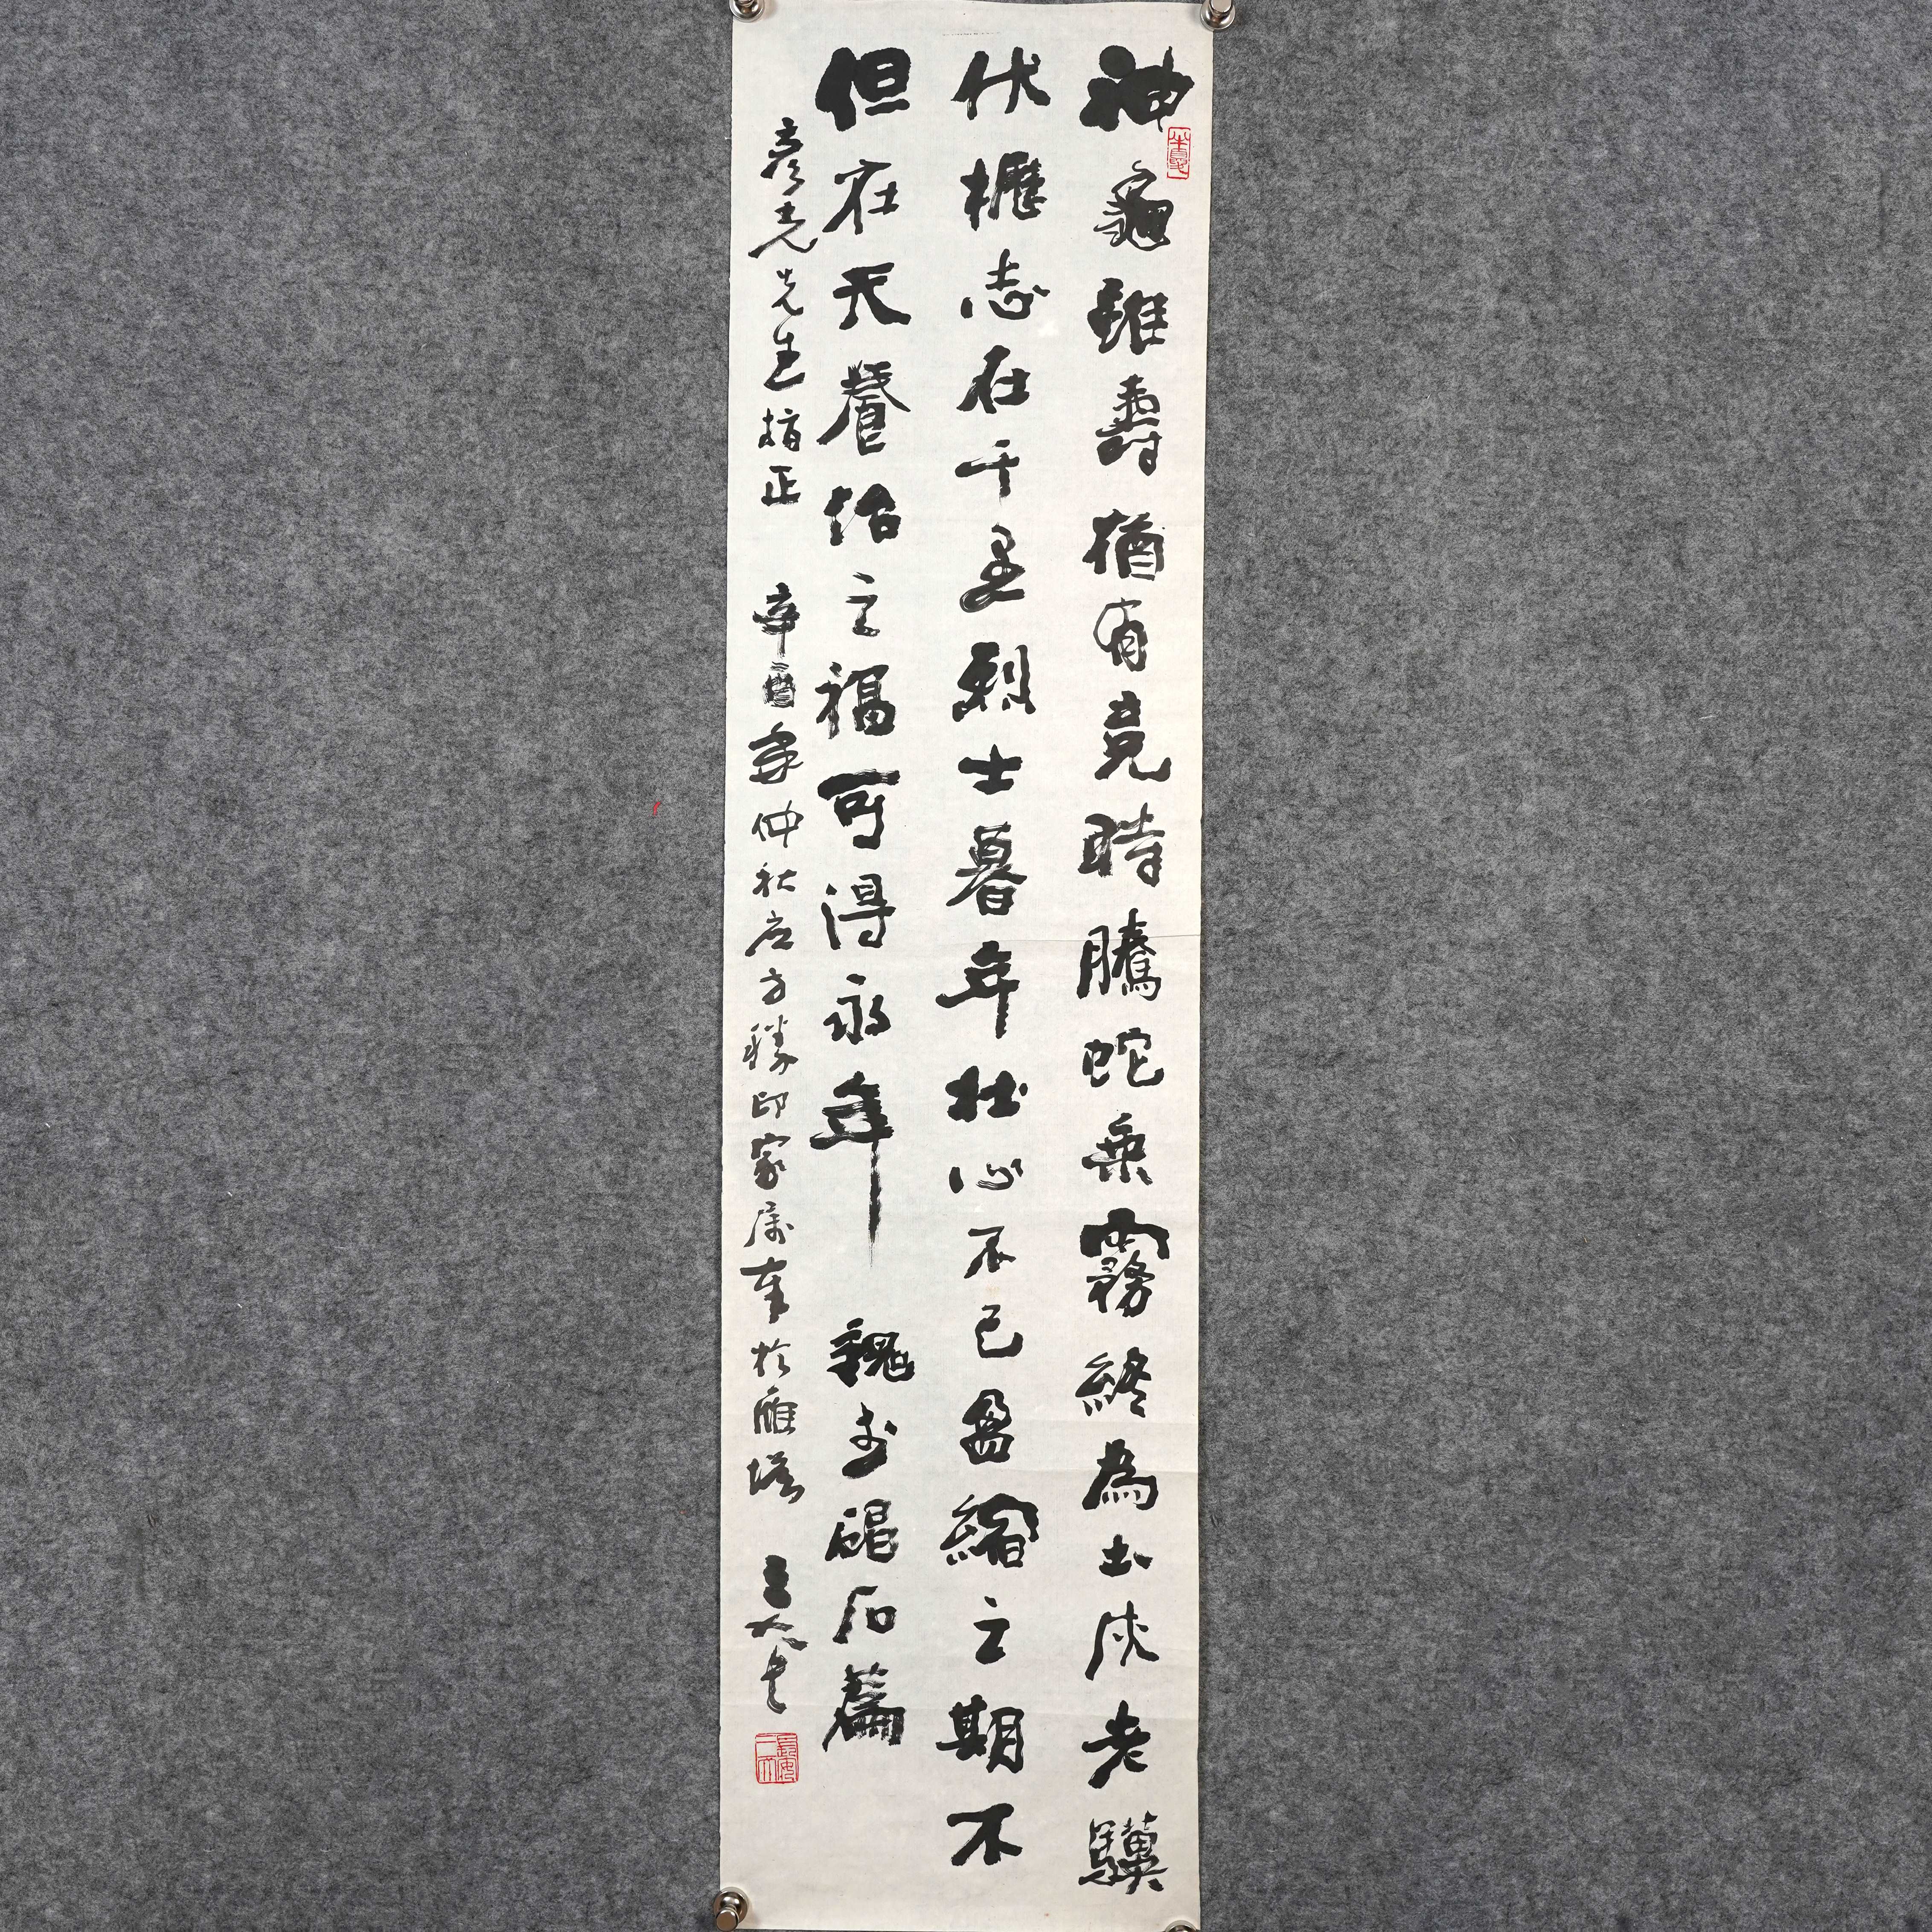 神龜雖壽猶有竟時騰蛇乘霧終為土灰老驥
伏櫪志在千里烈士暮年壯心不已盈縮之期不
但在天養怡之福可得永年 魏武碣石篇
彥先生指正 辛酉年仲秋應方勝印家屬書於雁塔